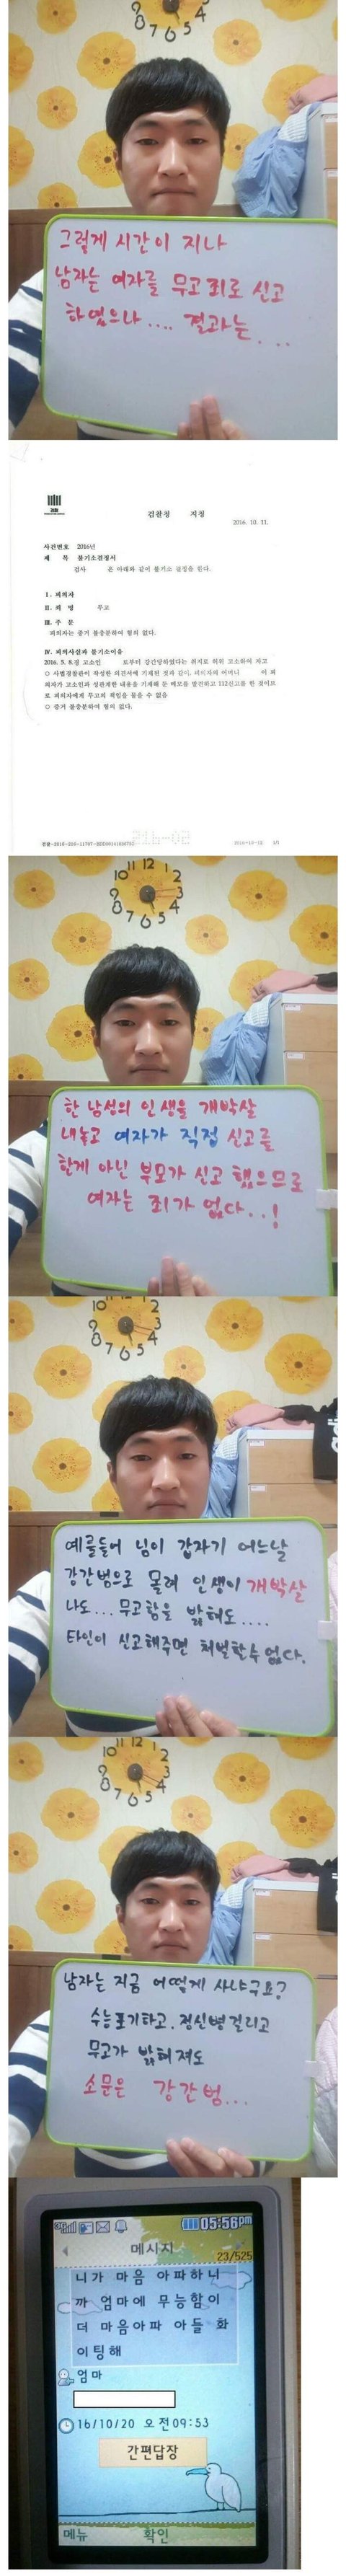 그렇게 시간이 지나
남자는 여자를 무고죄로 신고
하였으나.... 결과는....
검찰
검찰청 지청
2016. 10. 11.
사건번호 2016년
제 목 불기소결정서
검사 은 아래와 같이 불기소 결정을 한다.
I. 피의자
II. 죄 명 무고
III. 주 문
피의자는 증거 불충분하여 혐의 없다.
IV. 피의사실과 불기소이유
2016. 5. 8.경 고소인 로부터 강간당하였다는 취지로 허위 고소하여 무고
○ 사법경찰관이 작성한 의견서에 기재된 것과 같이, 피의자의 어머니 이 피
의자가 고소인과 성관계한 내용을 기재해 둔 메모를 발견하고 112신고를 한 것이므
로 피의자에게 무고의 책임을 물을 수 없음
○ 증거 불충분하여 혐의 없다.
1/1
한 남성의 인생을 개박살
내놓고 여자가 직접 신고를
한게 아닌 부모가 신고 했으므로
여자는 죄가 없다..!
예를들어 님이 갑자기 어느날
강간범으로 몰려 인생이 개박살
나도... 무고함을 밝혀도....
타인이 신고해주면 처벌할수 없다.
남자는 지금 어떻게 사냐구요?
수능포기하고. 정신병걸리고
무고가 밝혀져도
소문은 강간범...
3G 05:56pm
메시지
23/525
니가 마음 아파하니
까 엄마에 무능함이
더 마음아파 아들 화
이팅해
엄마
16/10/20 오전09:53
간편답장
메뉴 확인